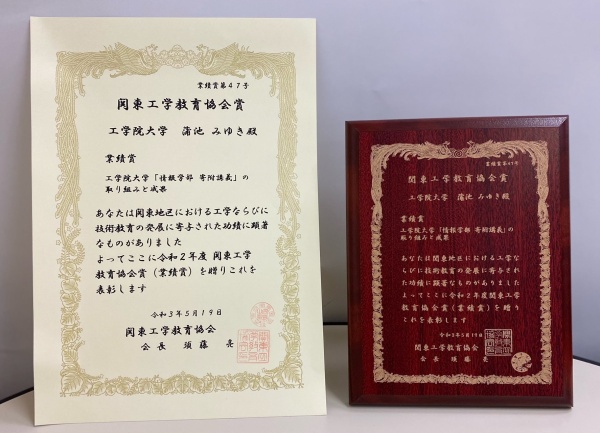 業績賞第47号
関東工学教育協会賞
工学院大学　蒲池 みゆき殿
業績賞
工学院大学「情報学部 寄附講義」の
取り組みと成果
あなたは関東地区における工学ならびに
技術教育の発展に寄与された功績に顕著
なものがありました
よってここに令和2年度 関東工学
教育協会賞(業績賞)を贈りこれを
表彰します
令和3年5月19日
関東工学教育協会
会長　須藤　亮
業績賞第47号
関東工学教育協会賞
工学院大学　蒲池 みゆき殿
業績賞
工学院大学「情報学部 寄附講義」の
取り組みと成果
あなたは関東地区における工学な
らびに技術教育の発展に寄与され
た功績に顕著なものがありました
よってここに令和2年度関東工学
教育協会賞(業績賞)を贈り
これを表彰します
令和3年5月19日
関東工学教育協会
会長　須藤　亮